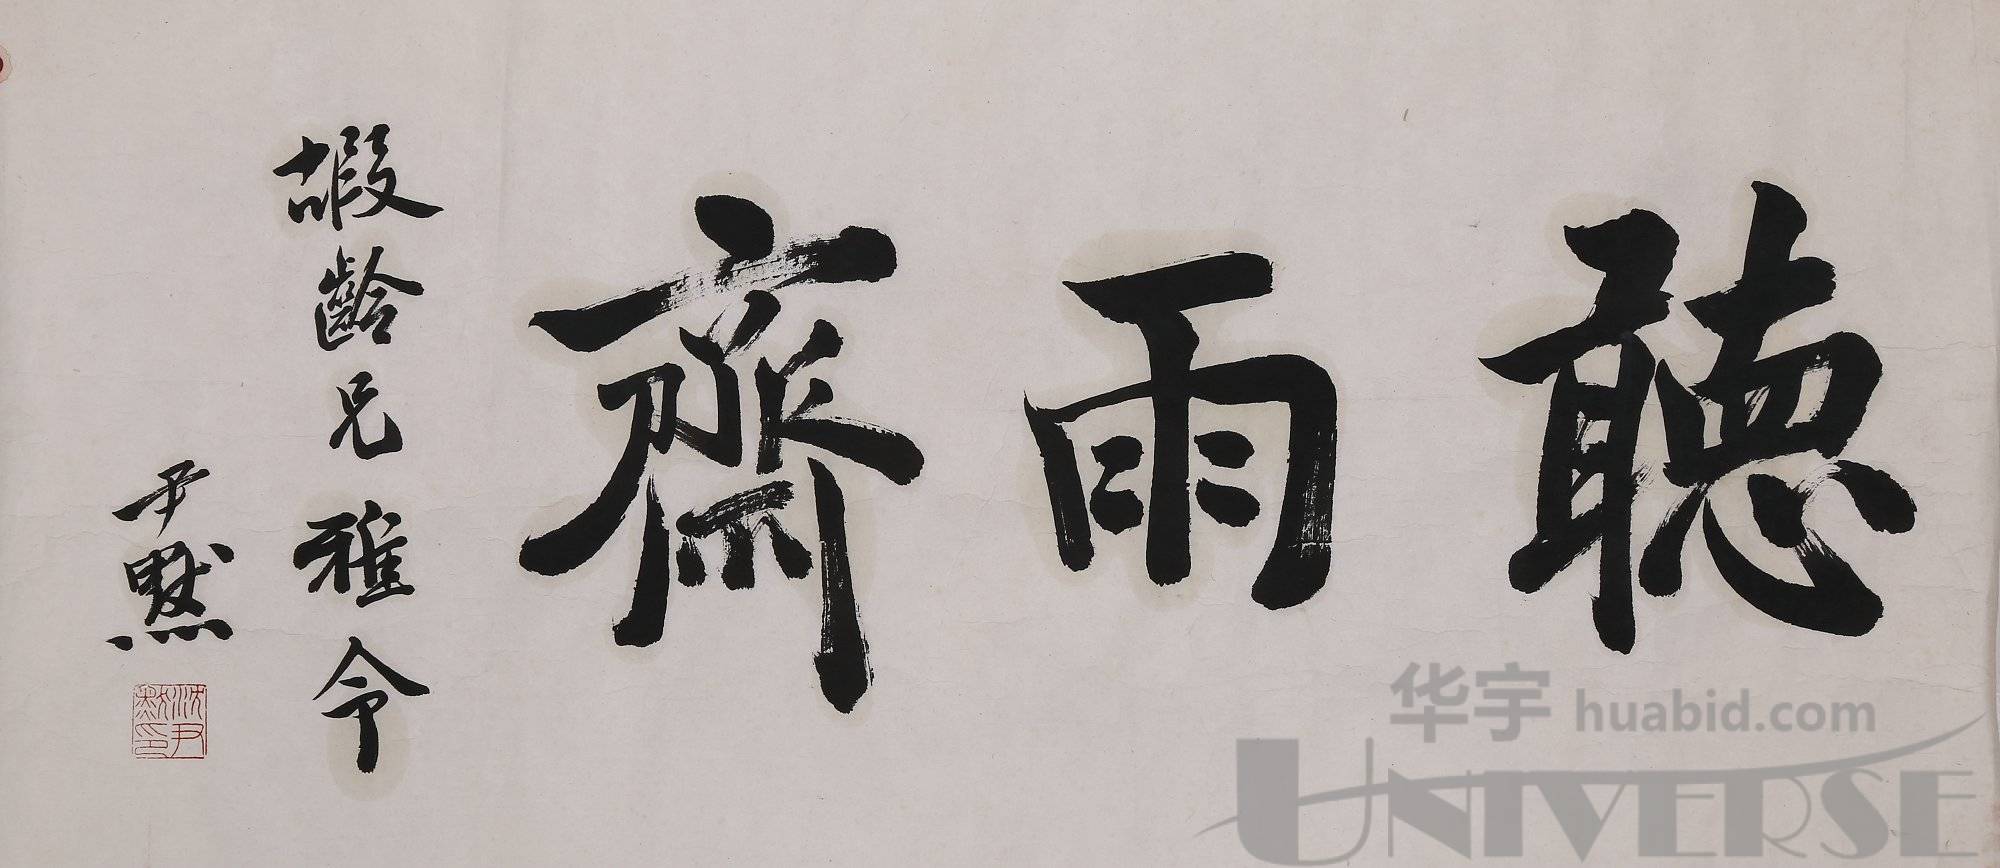 聽雨齋
嘏齡兄雅令
尹默
沈尹默印
华宇 huabid.com
UNIVERSE